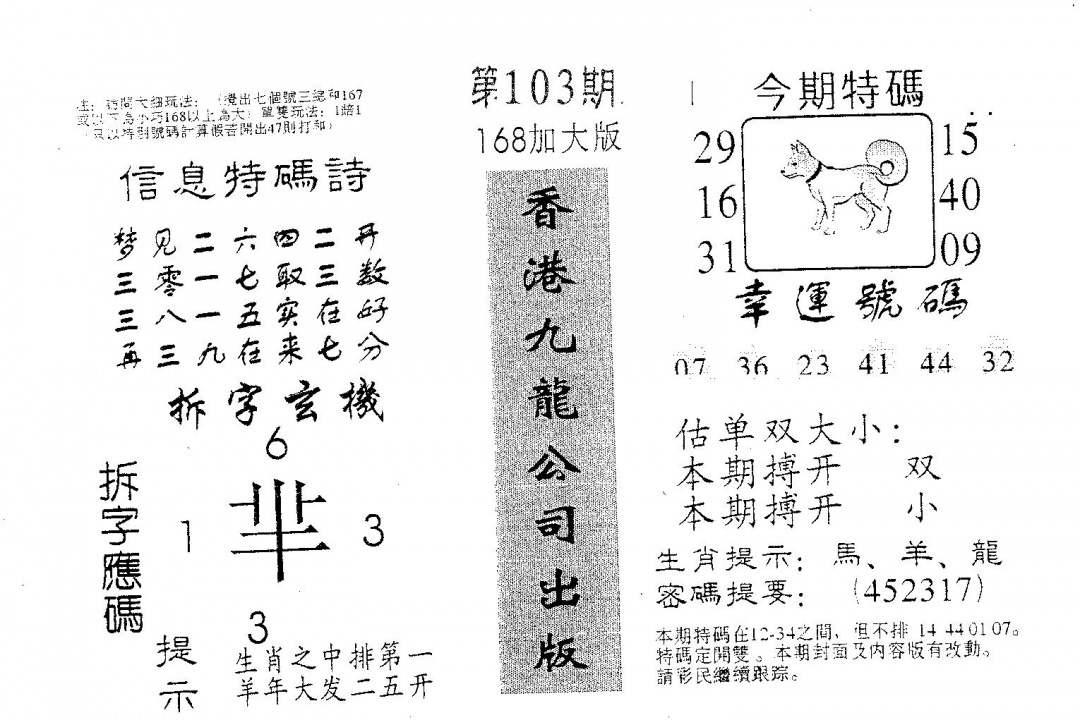 注：訪問大細玩法：（攪出七個號三總和167
或以下為小巧168以上為大）單雙玩法：1賠1
（只以特別號碼計算假若開出47則打和）
信息特碼詩
梦见二六四二开
三零一七取三数
三八一五实在好
再三九在来七分
拆字玄機
拆字應碼
6
1
3
3
提示
生肖之中排第一
羊年大发二五开
第103期
168加大版
香港九龍公司出版
今期特碼
29 15
16 40
31 09
幸運號碼
07 36 23 41 44 32
估单双大小：
本期搏开 双
本期搏开 小
生肖提示：馬、羊、龍
密碼提要：（452317）
本期特碼在12-34之間，但不排 14 44 01 07。
特碼定開雙。本期封面及内容版有改動。
請彩民繼續跟踪。